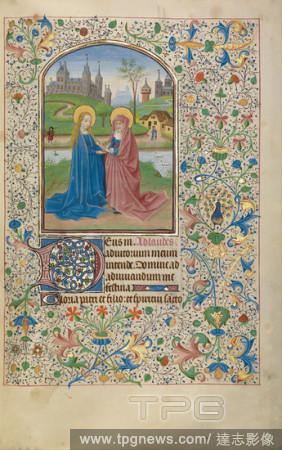 Deus in Ad laudes
adiutorium meum
intende. Domine ad
adiuuandum me
festina
Gloria patri et filio: et spiritui sancto
TPG
www.tpgnews.com/達志影像